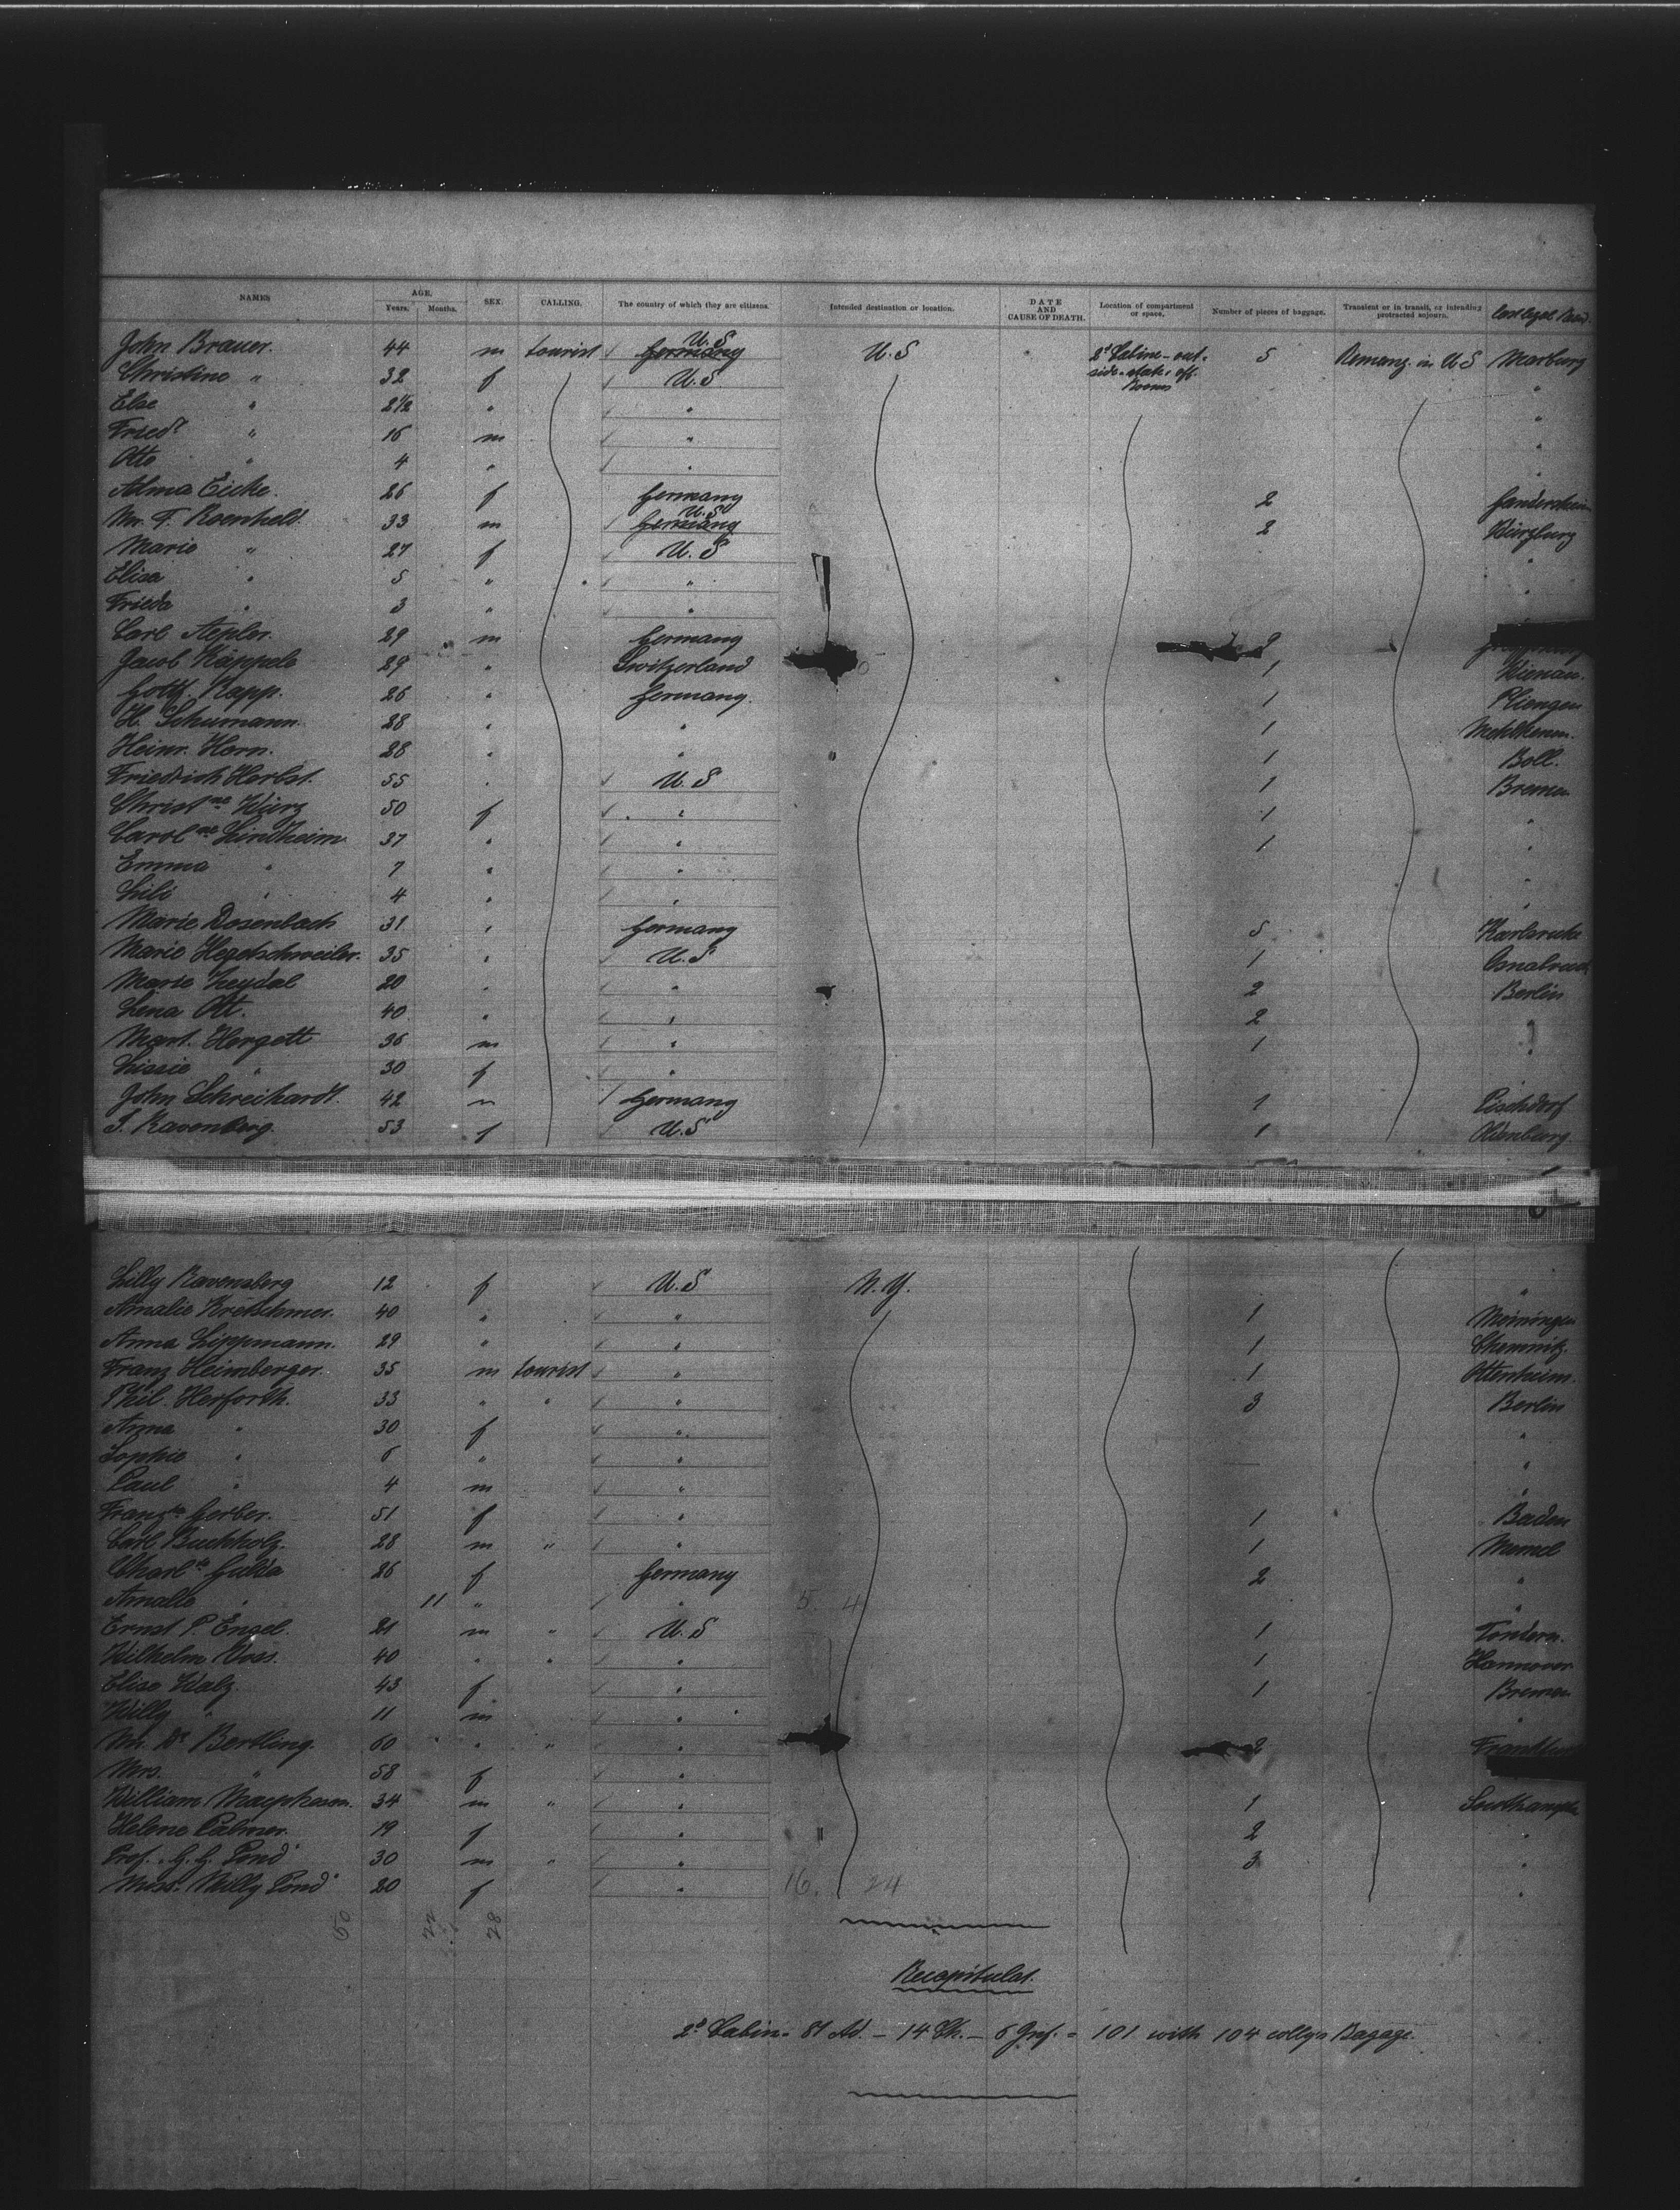 NAMES AGE. Years. Months. SEX. CALLING. The country of which they are citizens. Intended destination or location. DATE AND CAUSE OF DEATH. Location of compartment or space. Number of pieces of baggage. Transient or in transit, or intending protracted sojourn. Last legal Resid.
John Brauer. 44 m tourist Germany U.S U.S 2d Cabine - out- side - state - off. Rooms 5 Remang. in U S Marburg
Christine " 32 f U.S "
Else " 2 1/2 " " "
Friedr " 16 m " "
Otto " 4 " " "
Alma Eicke. 26 f Germany 2 Gandersheim
Mr. F. Roenheld. 33 m Germany U.S 2 Würzburg
Marie " 27 f U.S "
Elisa " 5 " " "
Frieda " 3 " "
Carl Stepler. 29 m Germany 2
Jacob Käppele 29 " Switzerland 1 Wienau.
Gottl. Rapp. 26 " Germany. 1 Pliengen
H. Schumann. 28 " " 1
Heinr. Horn. 28 " " 1 Boll.
Friedrich Herbst. 55 " U.S 1 Bremen
Christne Würz 50 f " 1 "
Carolne Lindheim 37 " " 1 "
Emma " 7 " " "
Lili " 4 " " "
Marie Dosenbach 31 " Germany 5 Karlsruhe
Marie Hegetschweiler. 35 " U.S 1 Osnabrueck
Marie Heydal 20 " " 2 Berlin
Lena Ott. 40 " " 2 "
Mart. Hergett 36 m " 1 "
Lissie " 30 f " "
John Schreihardt. 42 m Germany 1 Pischdorf
S. Ravensberg. 53 f U.S 1 Oldenburg
Lilly Ravensberg 12 f U.S N.Y. "
Amalie Kretschmer. 40 " " 1
Anna Lippmann. 29 " " 1 Chemnitz.
Franz Heimberger. 35 m tourist " 1 Ottenheim.
Phil. Herforth. 33 " " " 3 Berlin
Anna " 30 f " "
Sophie " 6 " " "
Paul " 4 m " "
Franzka Gerber. 51 f " 1 Baden
Carl Buchholz. 28 m " " 1 Memel
Charlte Gulda 26 f Germany 2 "
Amalie " 11 " " 5. 4 "
Ernst P. Engel. 21 m " U.S 1 Tondern.
Wilhelm Voss. 40 " " " 1 Hannover
Elise Walz. 43 f " 1 Bremen
Willy " 11 m " "
Mr. Dr Bertling. 60 " " " 2 Frankfurt
Mrs. " 58 f "
William Macpheson. 34 m " " 1 Southampton
Helene Palmer. 19 f " 2 "
Prof. G. G. Pond 30 m " " 3 "
Miss. Milly Pond 20 f " 16. 24 "
50 22 28
Recapitulat.
2d Cabin = 81 Ad. - 14 Ch. - 6 Inf. = 101 with 104 collys Bagage.